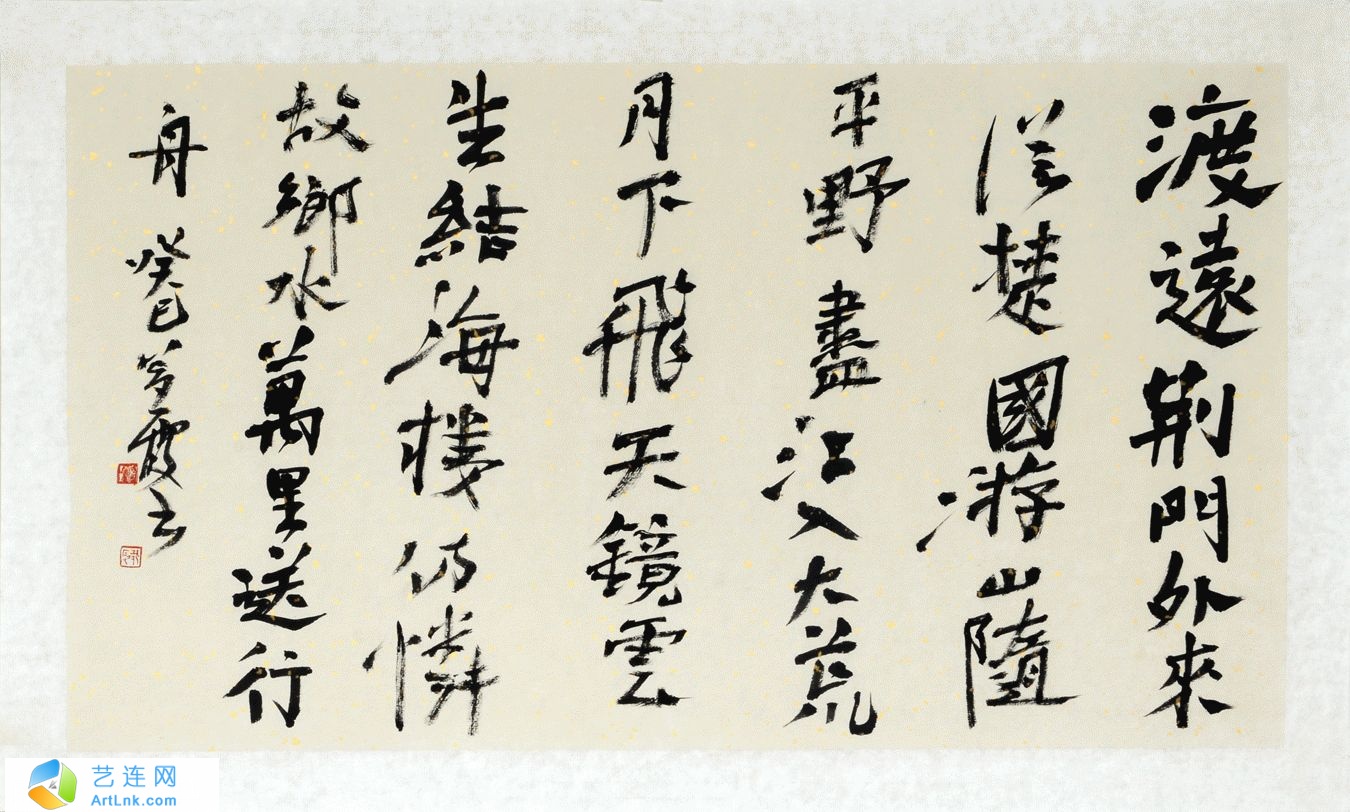 渡遠荆門外來
從楚國游山隨
平野盡江入大荒
月下飛天鏡雲
生結海樓仍憐
故鄉水萬里送行
舟
癸巳
霞书
艺连网
ArtLnk.com